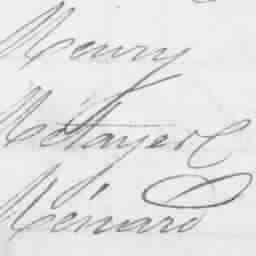 Meury
Métayer C
Ménard